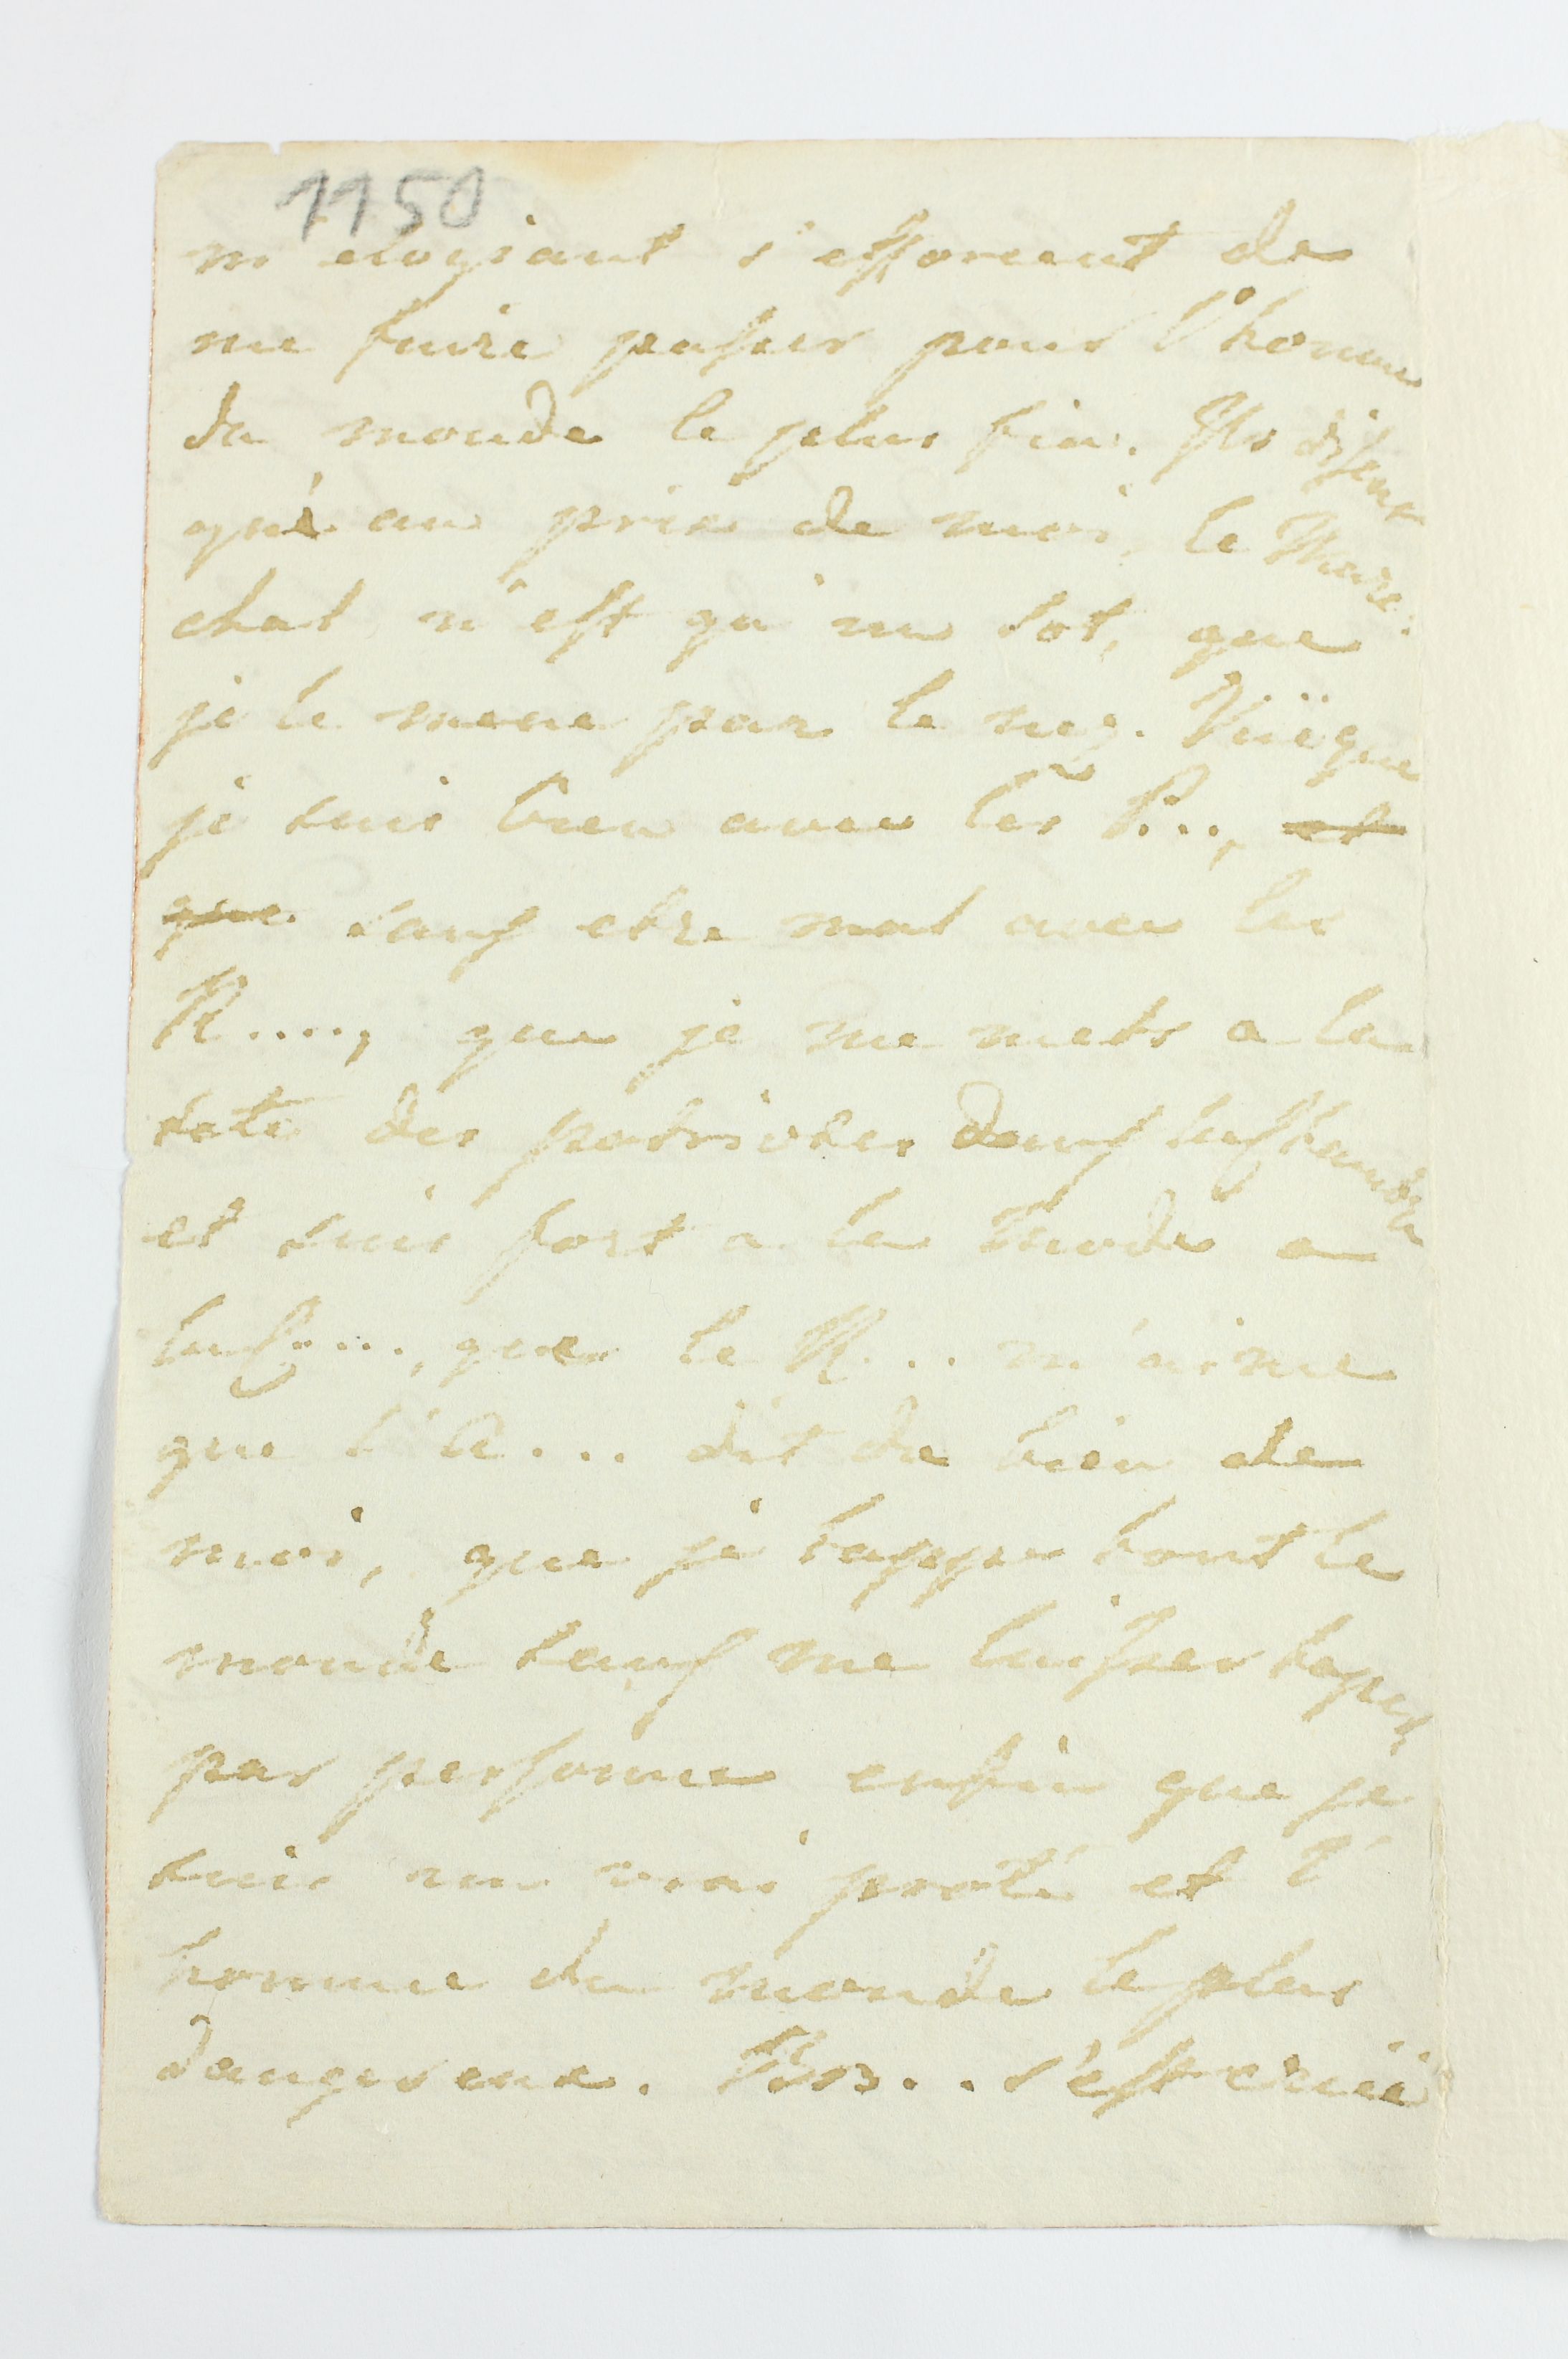 1150
m'elogiant s'efforcent de
me faire passer pour l'homme
du monde le plus fin. Ils disent
qu'au prix de moi, le Mare:
chal n'est qu'un sot, que
je le mene par le nez. Que
je suis bien avec les P..., et
que sans etre mal avec les
R...., que je me mets a la
tete des patriotes dans
et suis fort a la mode a
que le R... m'aime
que l'A... dit du bien de
moi, que je tappe tout le
monde sans me laisser taper
par personne enfin que je
suis un vrai proté et l'
homme du monde le plus
dangereux. s'est criié